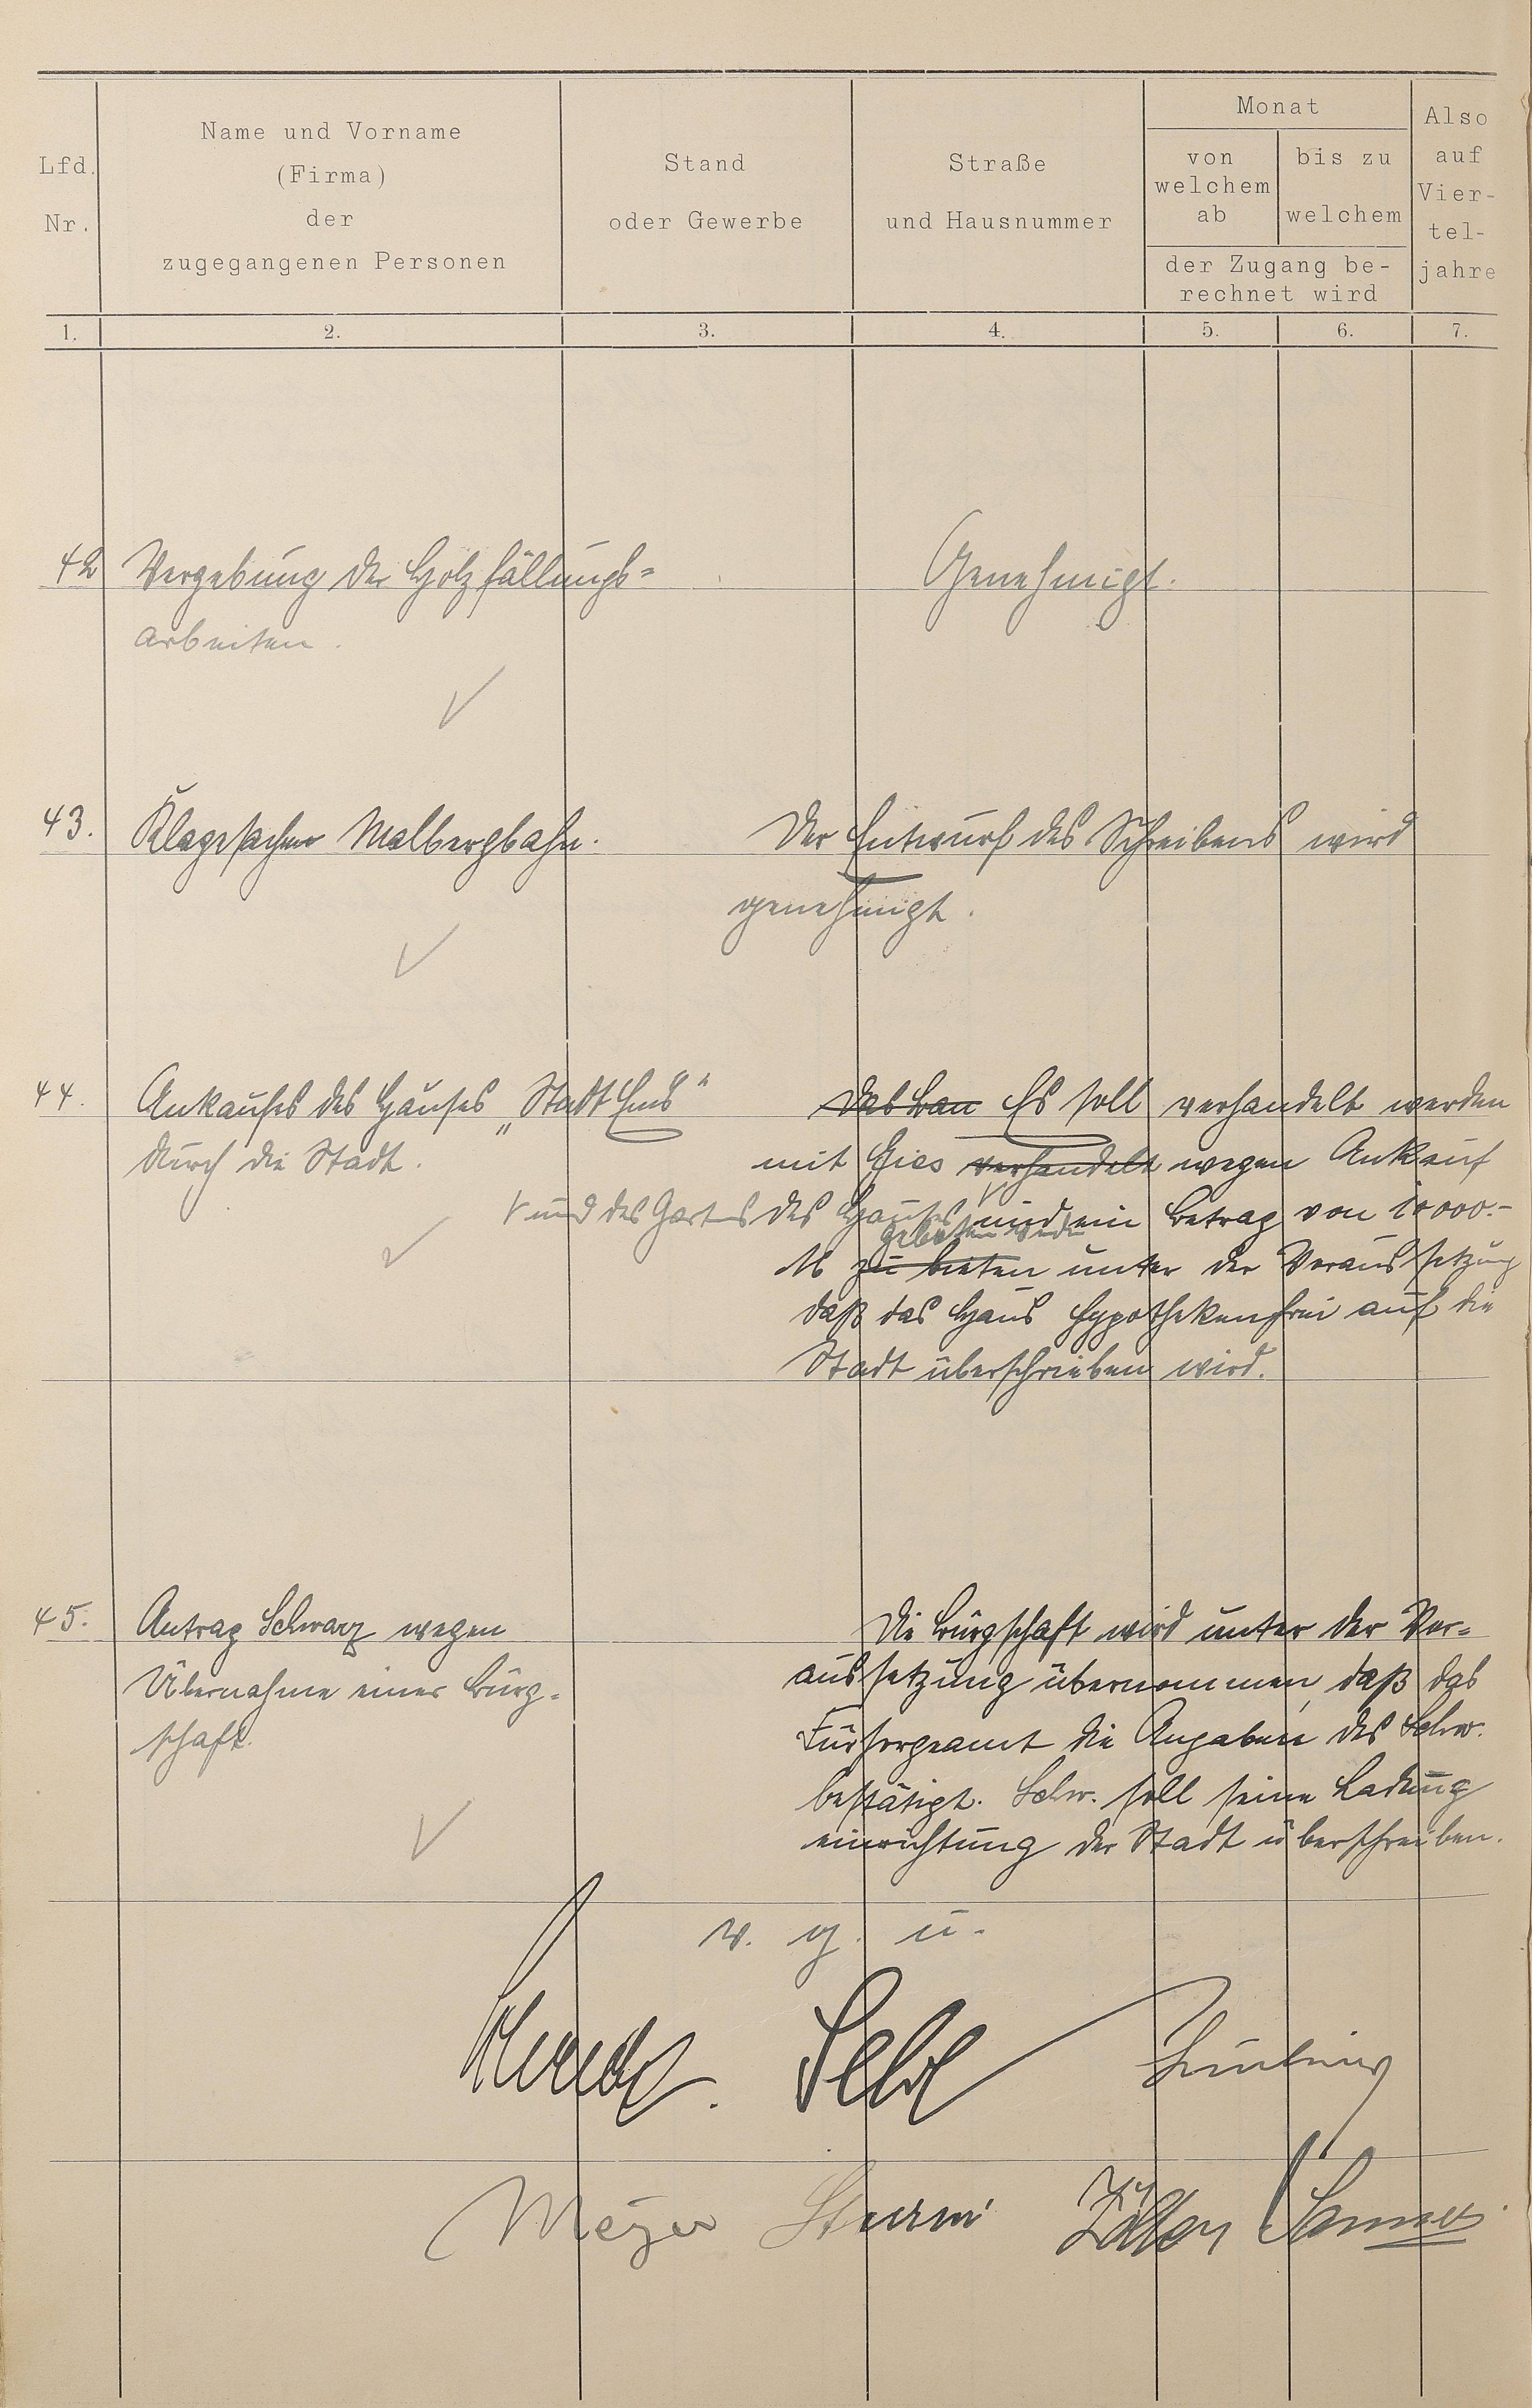 Lfd. Nr.
Name und Vorname
(Firma)
der
zugegangenen Personen
Stand
oder Gewerbe
Straße
und Hausnummer
Monat
von
welchem
ab
bis zu
welchem
der Zugang be-
rechnet wird
Also
auf
Vier-
tel-
jahre
1. 2. 3. 4. 5. 6. 7.
42 Vergebung der Holzfällungs=
arbeiten.
Genehmigt.
43. Klagesache Malbergbahn.
Der Entwurf des Schreibens wird
genehmigt.
44. Ankaufes des Hauses „Stadt Ems"
durch die Stadt.
Das Es soll verhandelt werden
mit Gies verhandelt wegen Ankauf
und des Gartens des Hauses und ein Betrag von 10000.-
geboten werden
M zu bieten unter der Voraussetzung
daß das Haus hypothekenfrei auf die
Stadt überschrieben wird.
45. Antrag Schwarz wegen
Übernahme einer Bürg-
schaft.
Die Bürgschaft wird unter der Vor=
aussetzung übernommen, daß das
Fürsorgeamt die Angaben des Schw.
bestätigt. Schw. soll seine Ladung
einrichtung der Stadt überschreiben.
v. g. u.
Meyer Sturm